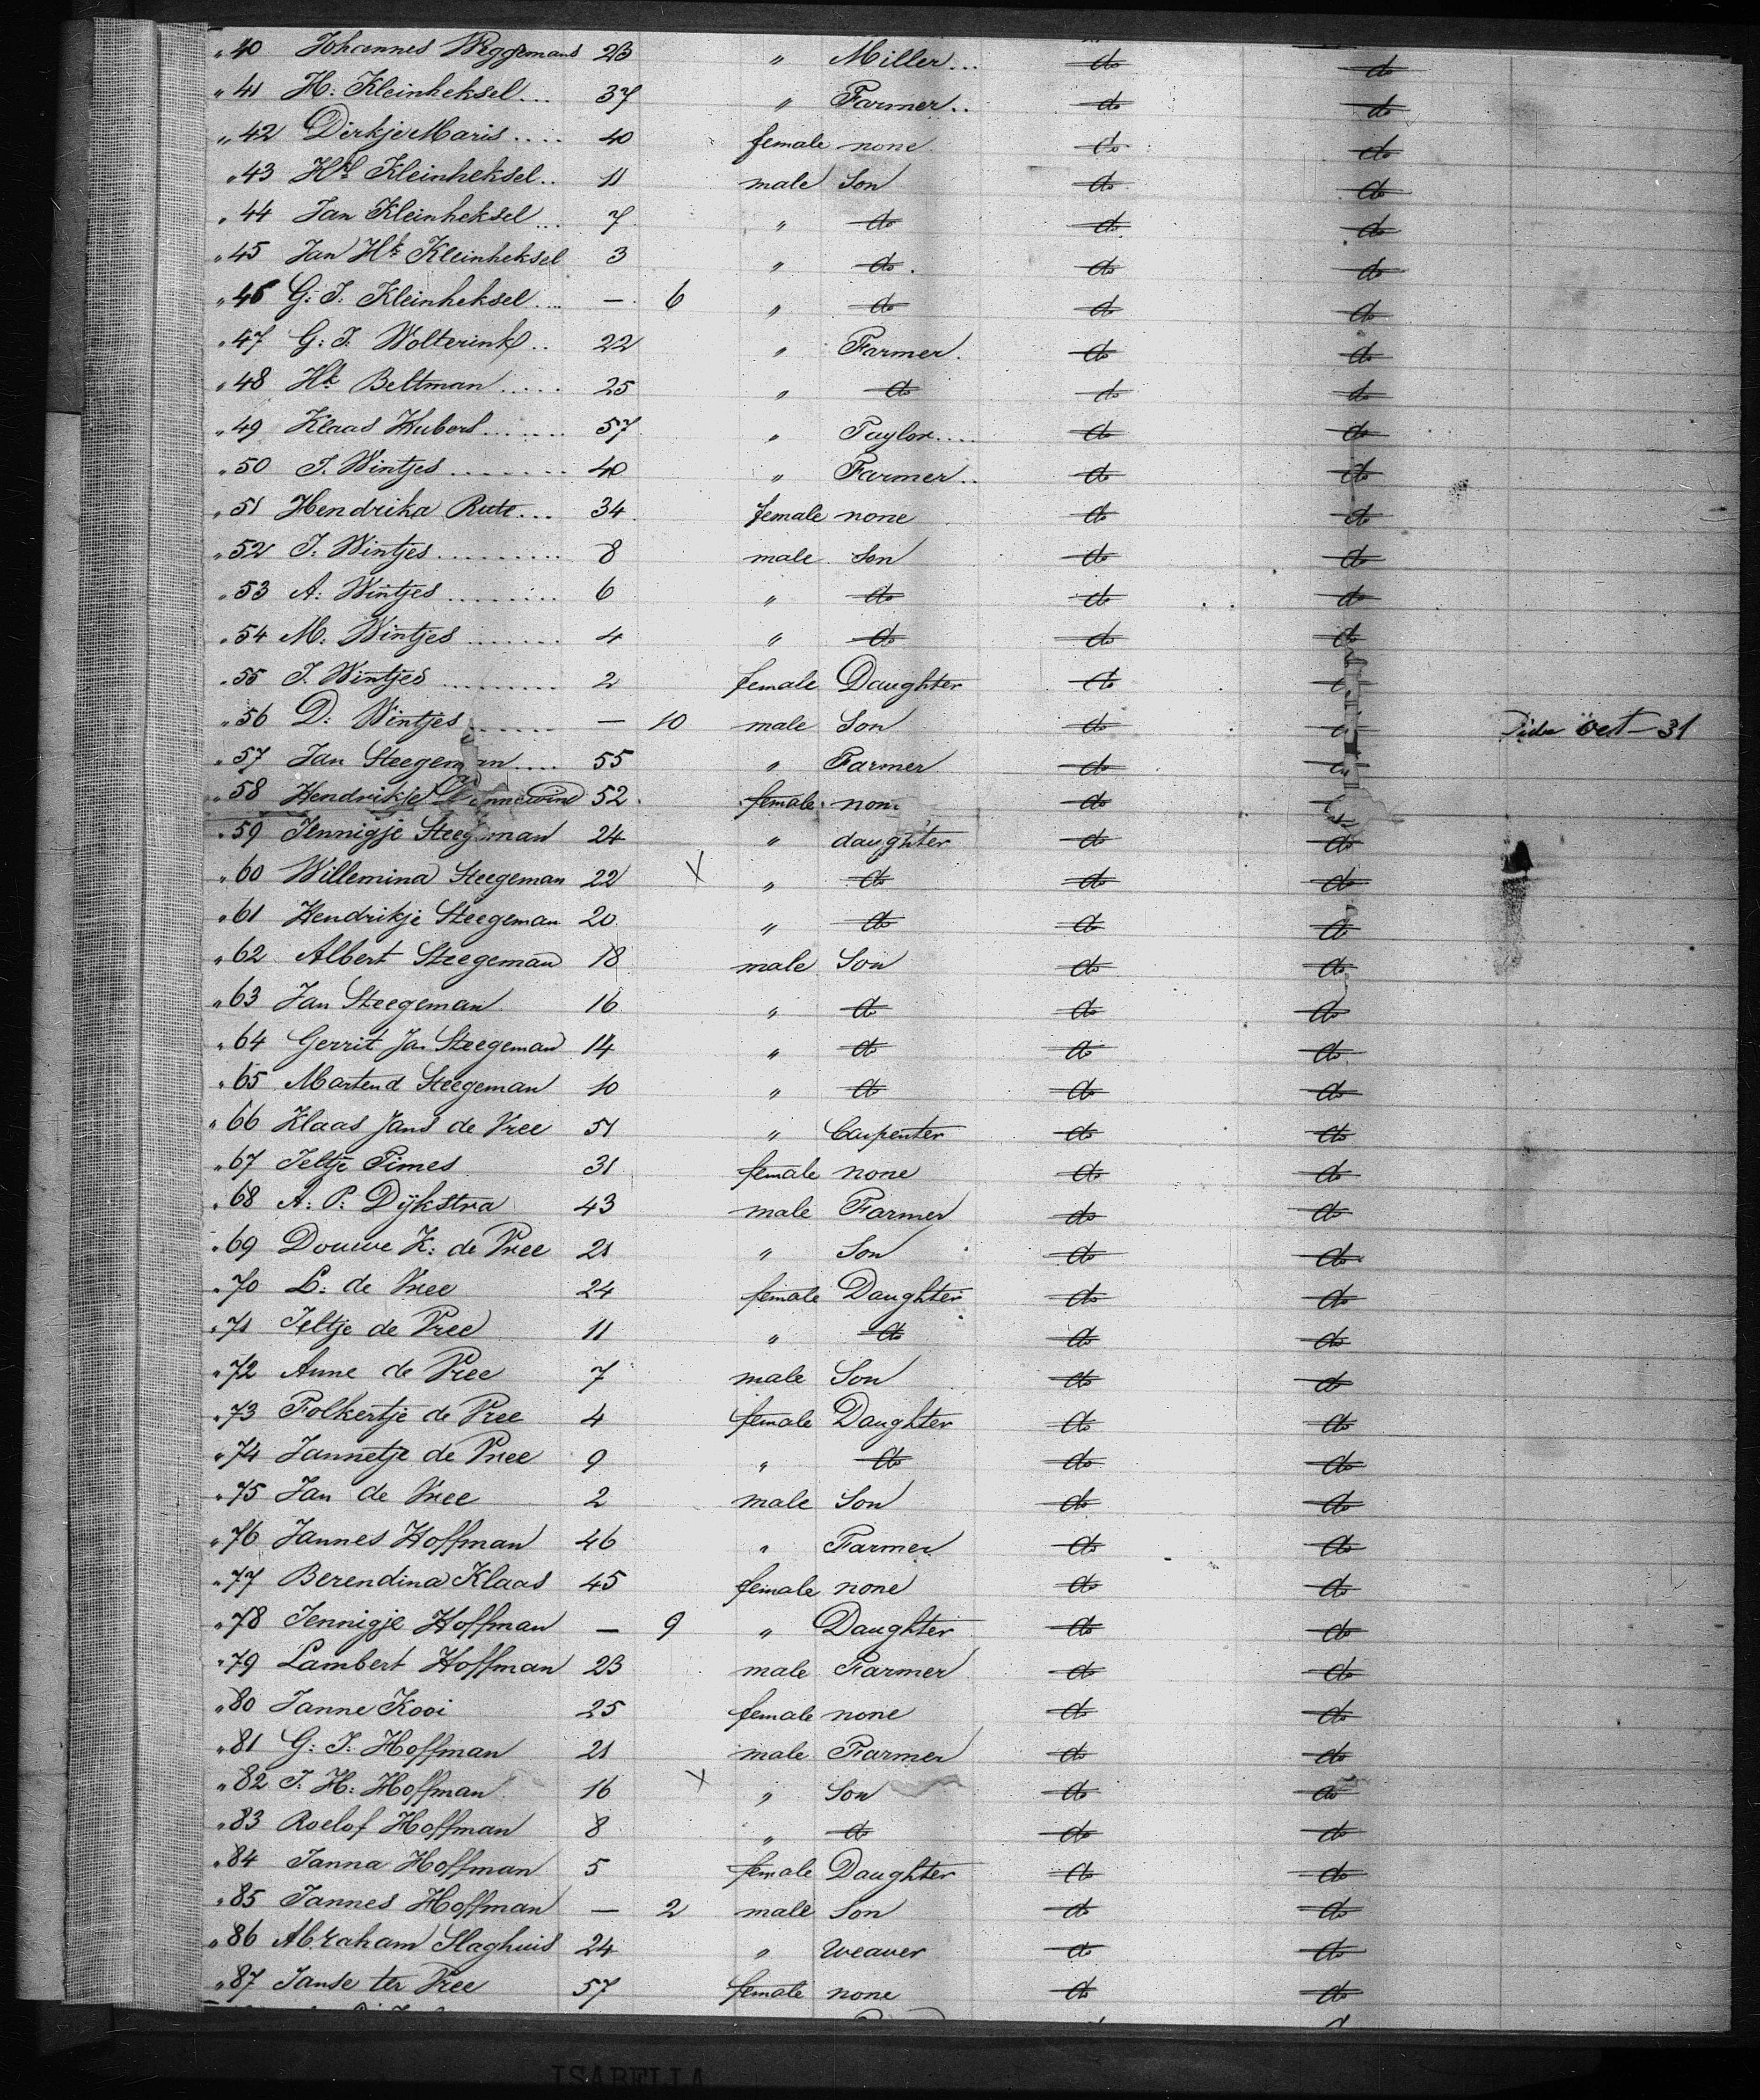 " 40 Johannes Weggemans 23 " Miller... do do
" 41 H: Kleinheksel... 37 " Farmer.. do do
" 42 Dirkje Maris.... 40 female none do do
" 43 Hk Kleinheksel.. 11 male Son do do
" 44 Jan Kleinheksel... 7 " do do do
" 45 Jan Hk Kleinheksel 3 " do. do do
" 46 G: J: Kleinheksel.... — 6 " do do do
" 47 G: J. Wolterink.. 22 " Farmer. do do
" 48 Hk Beltman..... 25 " do do do
" 49 Klaas Hubers....... 57 " Taylor.... do do
" 50 J. Wintjes........ 40 " Farmer.. do do
" 51 Hendrika Rute... 34 female none do do
" 52 J: Wintjes......... 8 male Son do do
" 53 A: Wintjes........ 6 " do do do
" 54 M: Wintjes....... 4 " do do do
" 55 J. Wintjes......... 2 female Daughter do
" 56 D: Wintjes...... — 10 male Son do oct - 31
" 57 Jan Steegeman.... 55 " Farmer do
" 58 Hendrikje 52. female none do
" 59 Jennigje Steegeman 24 " daughter do do
" 60 Willemina Steegeman 22 X " do do do
" 61 Hendrikje Steegeman 20 " do do do
" 62 Albert Steegeman 18 male Son do do
" 63 Jan Steegeman 16 " do do do
" 64 Gerrit Jan Steegeman 14 " do do do
" 65 Martend Steegeman 10 " do do do
" 66 Klaas Jans de Vree 51 " Carpenter do do
" 67 Jeltje Pimes 31 female none do do
" 68 A: P: Dijkstra 43 male Farmer do do
" 69 Douwe K: de Vree 21 " Son do do
" 70 L: de Vree 24 female Daughter do do
" 71 Jeltje de Vree 11 " do do do
" 72 Anne de Vree 7 male Son do do
" 73 Folkertje de Vree 4 female Daughter do do
" 74 Jannetje de Vree 9 " do do do
" 75 Jan de Vree 2 male Son do do
" 76 Jannes Hoffman 46 " Farmer do do
" 77 Berendina Klaas 45 female none do do
" 78 Jennigje Hoffman — 9 " Daughter do do
" 79 Lambert Hoffman 23 male Farmer do do
" 80 Janne Kooi 25 female none do do
" 81 G: J: Hoffman 21 male Farmer do do
" 82 J: H: Hoffman 16 X " Son do do
" 83 Roelof Hoffman 8 " do do do
" 84 Janna Hoffman 5 female Daughter do do
" 85 Jannes Hoffman — 2 male Son do do
" 86 Abraham Slaghuis 24 " weaver do do
" 87 Janse ter Vree 57 female none do do
ISABELLA